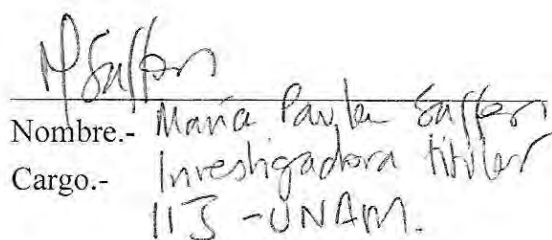 MSaffon
Nombre.- María Paula Saffon
Cargo.- Investigadora titular
IIJ - UNAM.